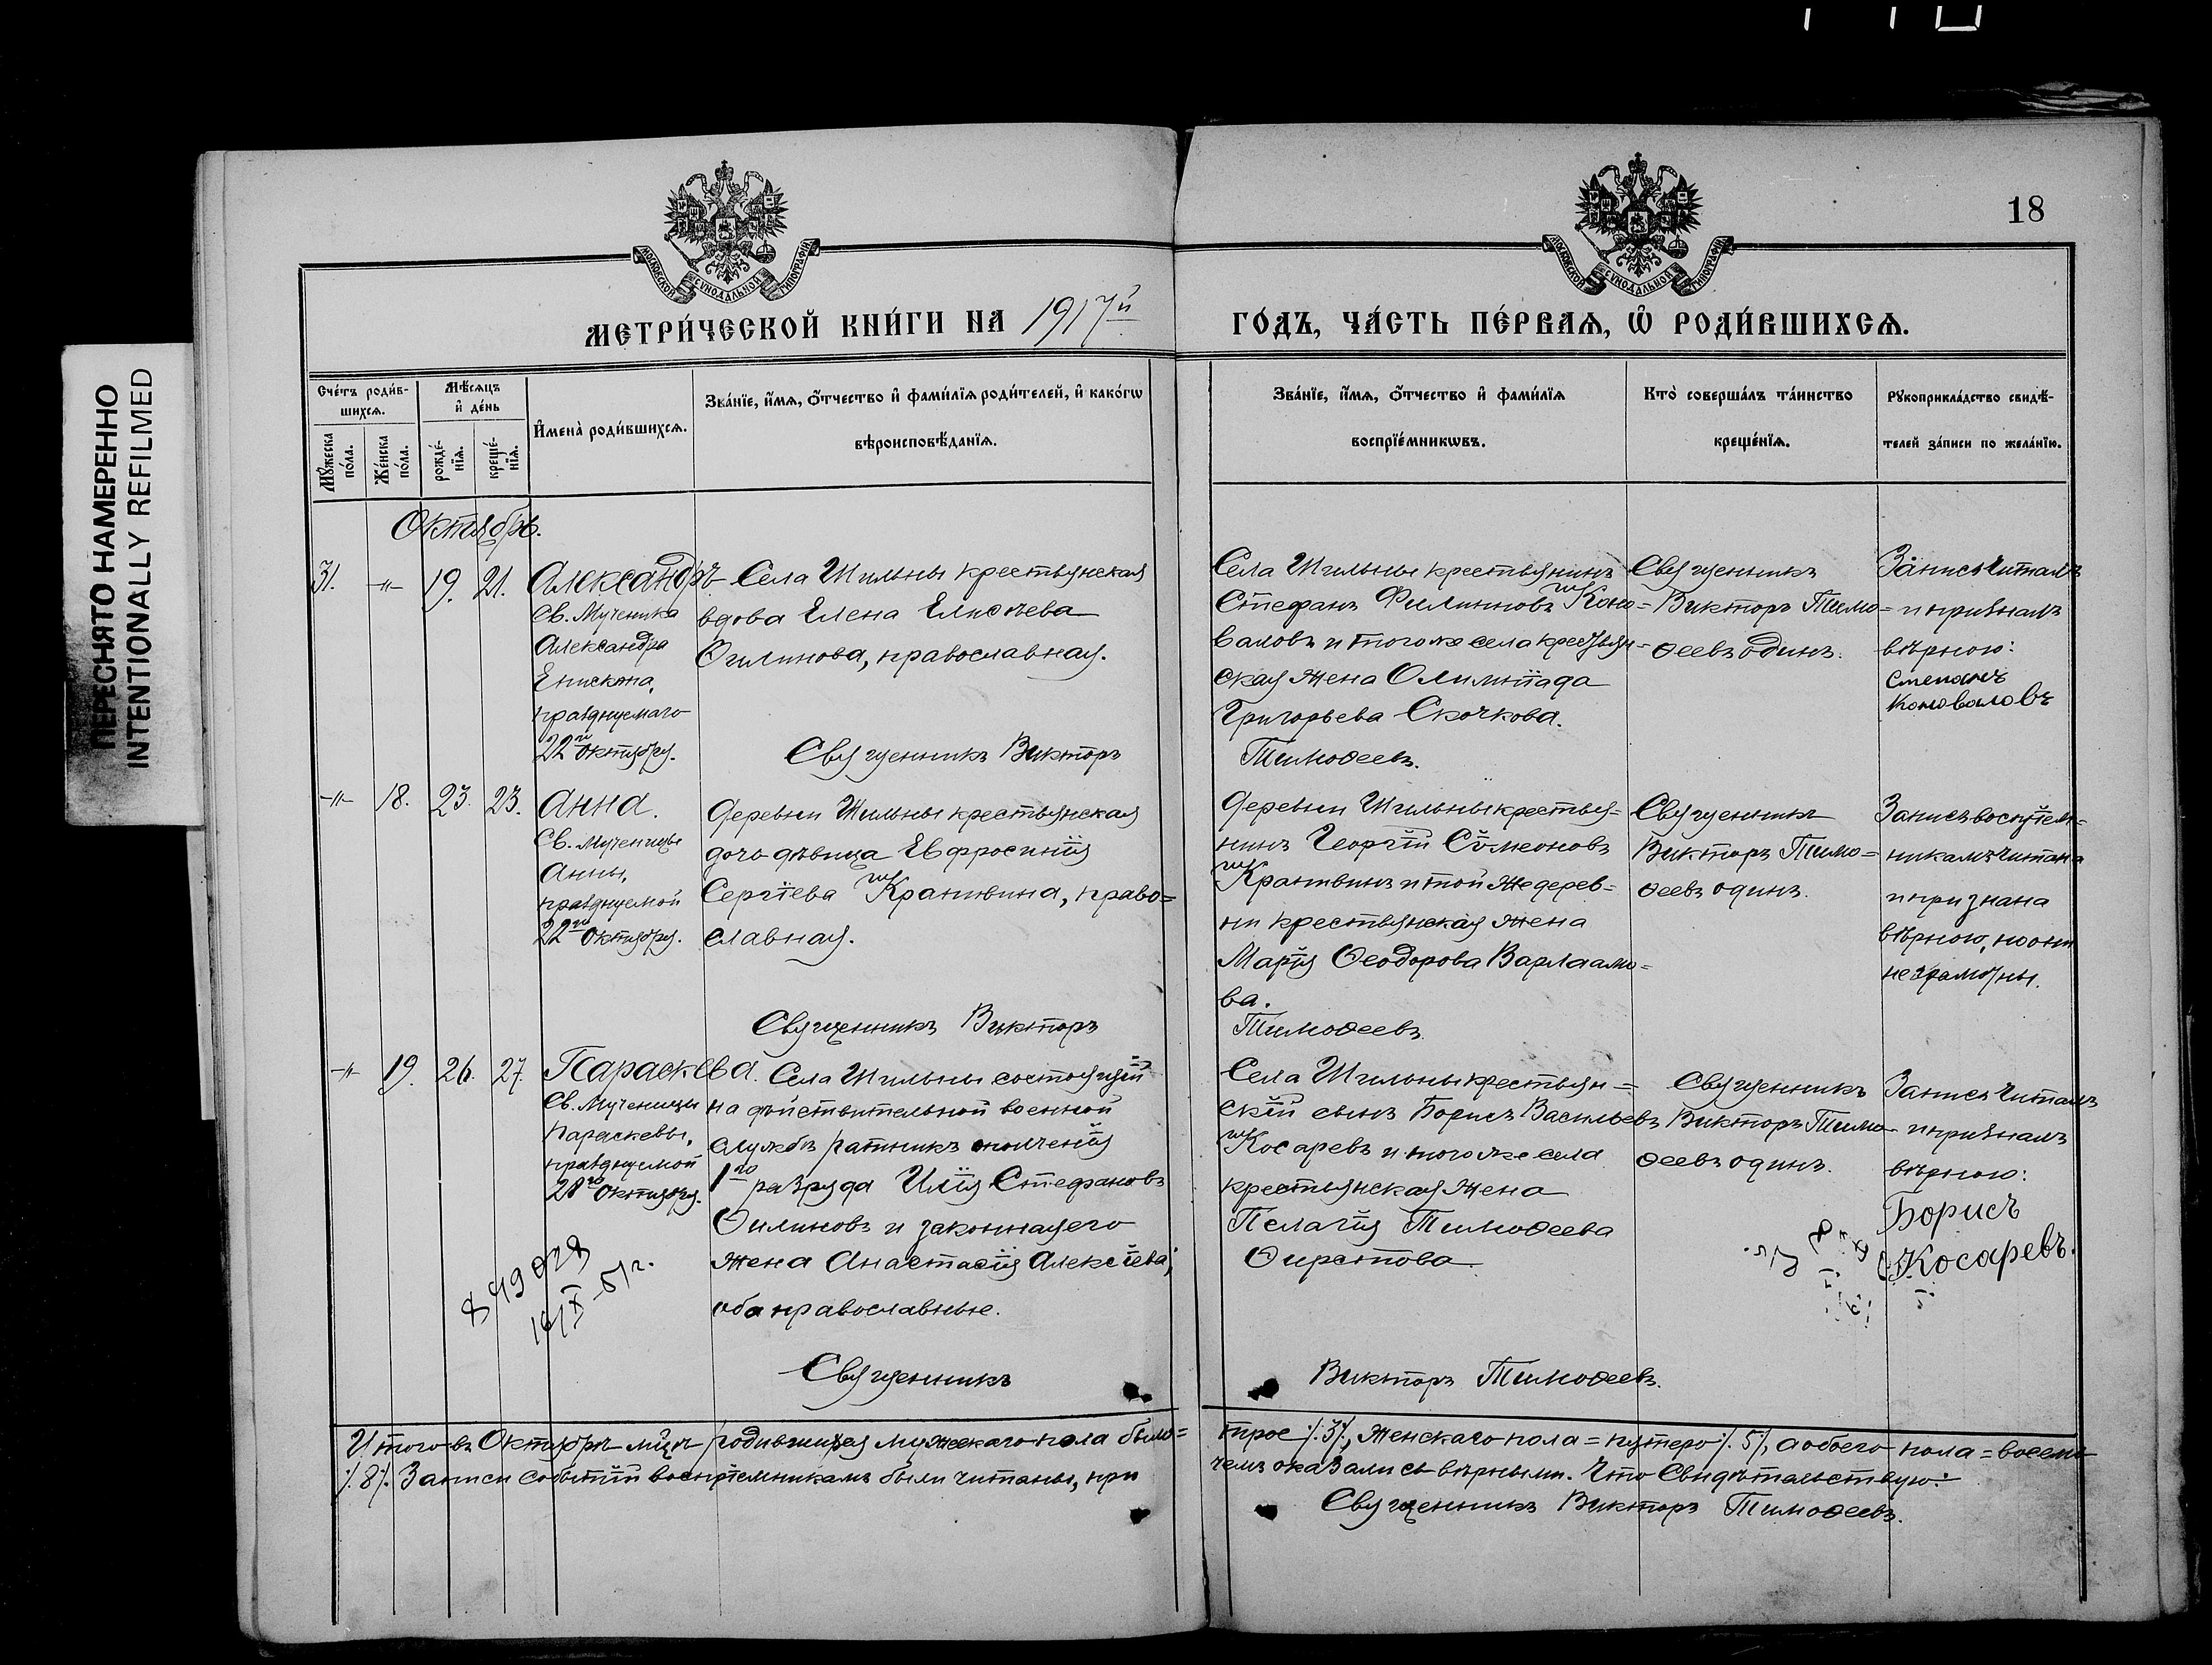 18
ПЕРЕСНЯТО НАМЕРЕННО
INTENTIONALLY REFILMED
МОСКОВСКОЙ СѴНОДАЛЬНОЙ ТИПОГРАФІИ
МОСКОВСКОЙ СѴНОДАЛЬНОЙ ТИПОГРАФІИ
МЕТРИ́ЧЕСКОЙ КНИ́ГИ НА 1917й
ГО́ДЪ, ЧА́СТЬ ПЕ́РВАѦ, Ѽ РОДИ́ВШИХСѦ.
Сче́тъ роди́в-
шихсѧ.
Мѣ́сѧцъ
и҆ де́нь
Мꙋ́жеска
по́ла.
Же́нска
по́ла.
рожде́-
нїѧ.
креще́-
нїѧ.
И҆мена̀ роди́вшихсѧ.
Зва́нїе, и҆́мѧ, ѻ҆́тчество и҆ фами́лїѧ роди́телей, и҆ како́гѡ
вѣроисповѣ́данїѧ.
Зва́нїе, и҆́мѧ, ѻ҆́тчество и҆ фами́лїѧ
воспрїе́мникѡвъ.
Кто̀ соверша́лъ та́инство
креще́нїѧ.
Рꙋкоприкла́дство свидѣ́-
телей за́писи по жела́нїю.
Октябрь.
31. -"- 19. 21. Александръ
Св. Мученика
Александра
Епископа,
празднуемаго
22го Октября.
Села Шильны крестьянская
вдова Елена Елисѣева
Ѳилипова, православная.
Священникъ Викторъ
Села Шильны крестьянинъ
Стефанъ Филипповъ Коно=
валовъ и того же села крестьян=
ская жена Олимпіада
Григорьева Скочкова.
Тимоѳеевъ.
Священникъ
Викторъ Тимо=
ѳеевъ одинъ.
Запись читалъ
и призналъ
вѣрною:
Степанъ
Коноваловъ
-"- 18. 23. 23. Анна.
Св. Мученицы
Анны,
празднуемой
22го Октября.
Деревни Шильны крестьянская
дочь дѣвица Евфросинія
Сергіева Крапивина, право=
славная.
Священникъ Викторъ
Деревни Шильны крестья=
нинъ Георгій Сѵмеоновъ
Крапивинъ и той же дерев=
ни крестьянская жена
Марія Ѳеодорова Варлаамо=
ва.
Тимоѳеевъ.
Священникъ
Викторъ Тимо=
ѳеевъ одинъ.
Запись воспріем=
никамъ читана
и признана
вѣрною, но они
неграмотны.
-"- 19. 26. 27. Параскева.
Св. Мученицы
Параскевы,
празднуемой
28го Октября.
Села Шильны состоящій
на дѣйствительной военной
службѣ ратникъ ополченія
1го разряда Илія Стефановъ
Ѳилиповъ и законная его
жена Анастасія Алексѣева;
оба православные.
Священникъ
Села Шильны крестьян=
скій сынъ Борисъ Васильевъ
Косаревъ и того же села
крестьянская жена
Пелагія Тимоѳеева
Ѳирстова
Викторъ Тимоѳеевъ.
Священникъ
Викторъ Тимо=
ѳеевъ одинъ.
Запись читалъ
и призналъ
вѣрною:
Борисъ
Косаревъ.
849028
16/X-51г.
Итого въ Октябрѣ м-цѣ родившихся мужескаго пола было=
трое /.3/., женскаго пола=пятеро /.5/., а обоего пола=восемь
/.8/. Записи событій воспріемникамъ были читаны, при
чемъ оказались вѣрными. Что Свидѣтельствую:
Священникъ Викторъ Тимоѳеевъ.